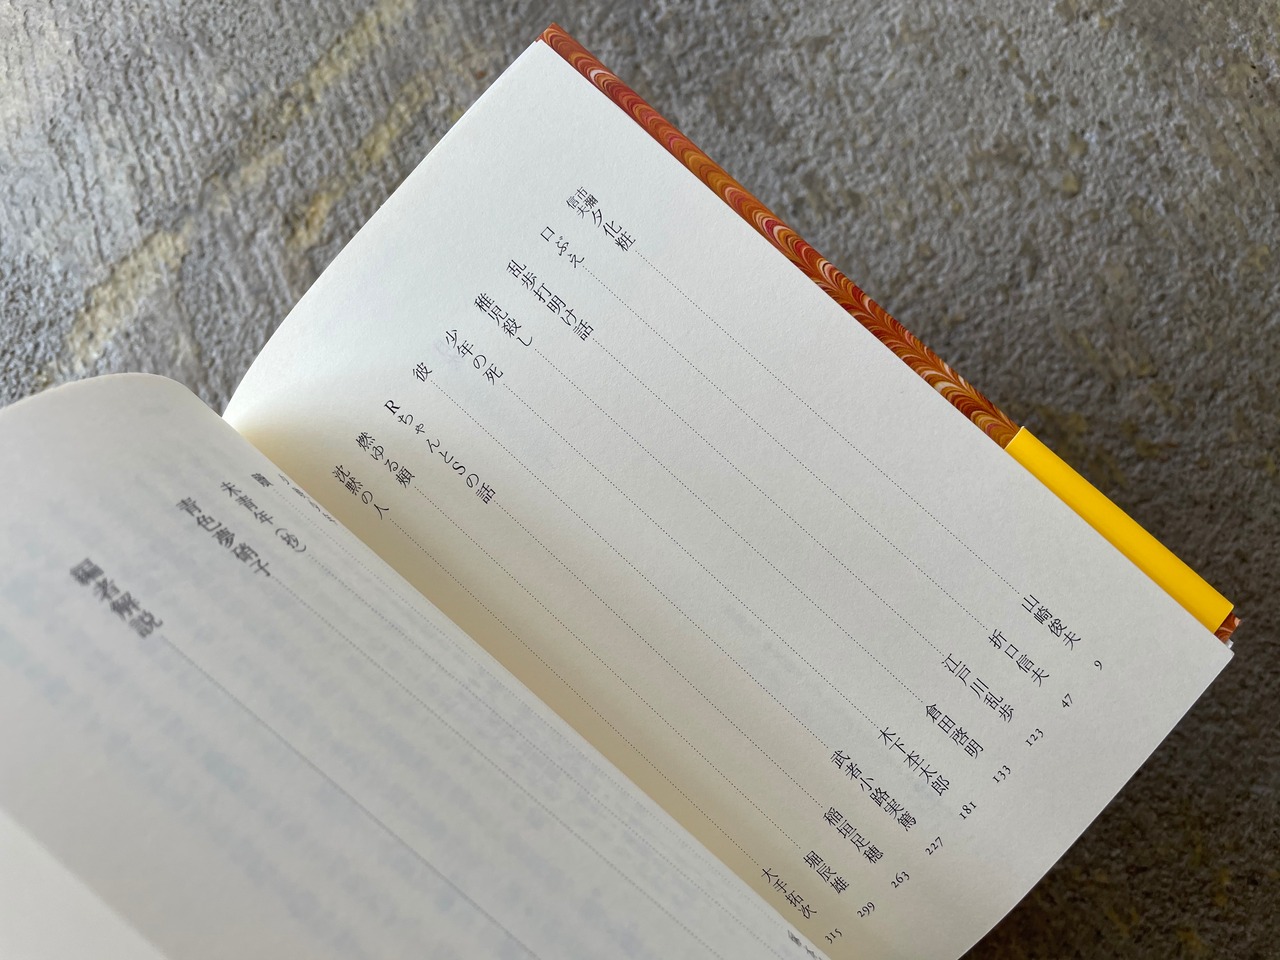 市彌信夫 夕化粧 山崎俊夫 9
口ぶえ 折口信夫 47
乱歩打明け話 江戸川乱歩 123
稚児殺し 倉田啓明 133
少年の死 木下杢太郎 181
彼 武者小路実篤 227
RちゃんとSの話 稲垣足穂 263
燃ゆる頬 堀辰雄 299
沈黙の人 大手拓次 315
未青年(抄)
青色夢硝子
編者解説